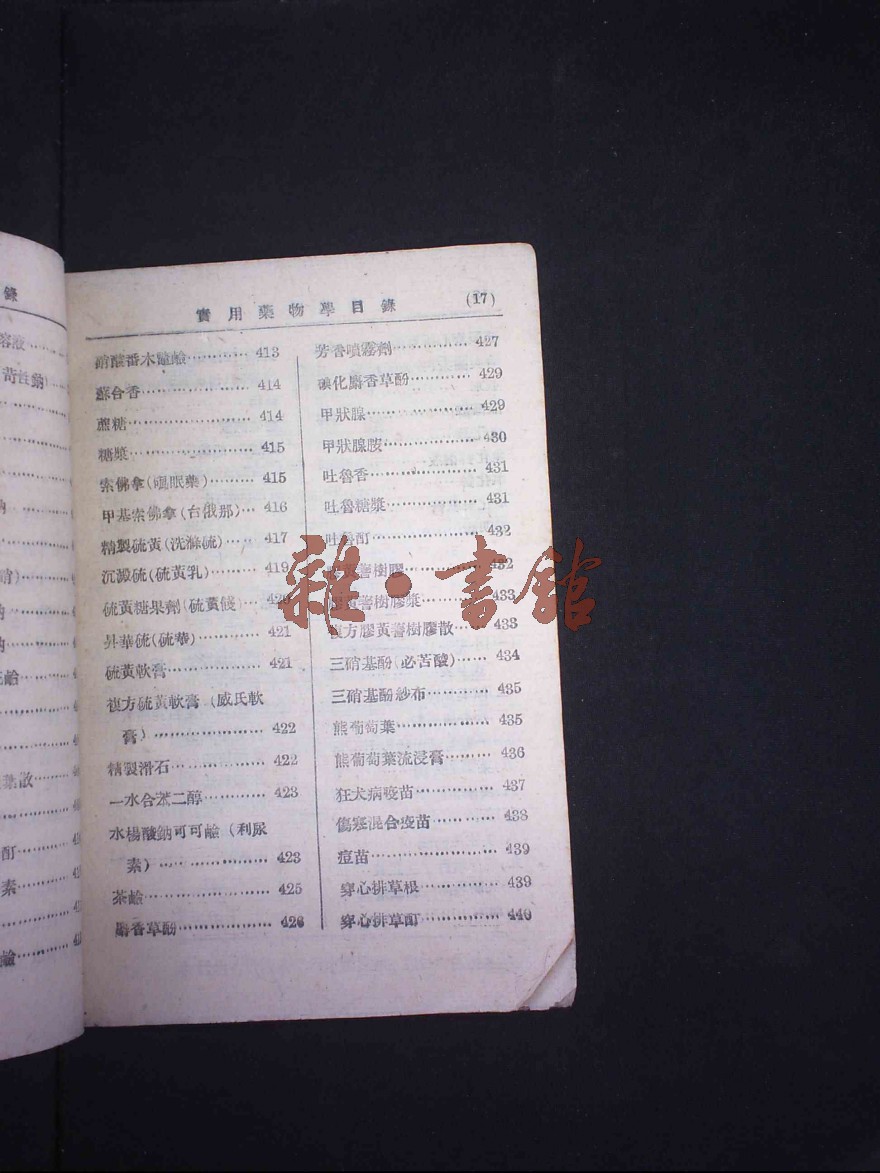 錄
溶液
苛性鈉)
鈉
硝)
鈉
鈉
鹼
散
酊
素
鹼
實用藥物學目錄 (17)
硝酸番木鼈鹼 413
蘇合香 414
蔗糖 414
糖漿 415
索佛拿(嗢眠藥) 415
甲基索佛拿(台俄那) 416
精製硫黃(洗滌硫) 417
沉澱硫(硫黃乳) 419
硫黃糖果劑(硫黃餞) 420
昇華硫(硫華) 421
硫黃軟膏 421
複方硫黃軟膏(威氏軟
膏) 422
精製滑石 422
一水合萜二醇 423
水楊酸鈉可可鹼(利尿
素) 423
茶鹼 425
麝香草酚 426
芳香噴霧劑 427
碘化麝香草酚 429
甲狀腺 429
甲狀腺胺 430
吐魯香 431
吐魯糖漿 431
吐魯酊 432
黃蓍樹膠 432
黃蓍樹膠漿 433
複方膠黃蓍樹膠散 433
三硝基酚(必苦酸) 434
三硝基酚紗布 435
熊葡萄葉 435
熊葡萄葉流浸膏 436
狂犬病疫苗 437
傷寒混合疫苗 438
痘苗 439
穿心排草根 439
穿心排草酊 440
雜·書館